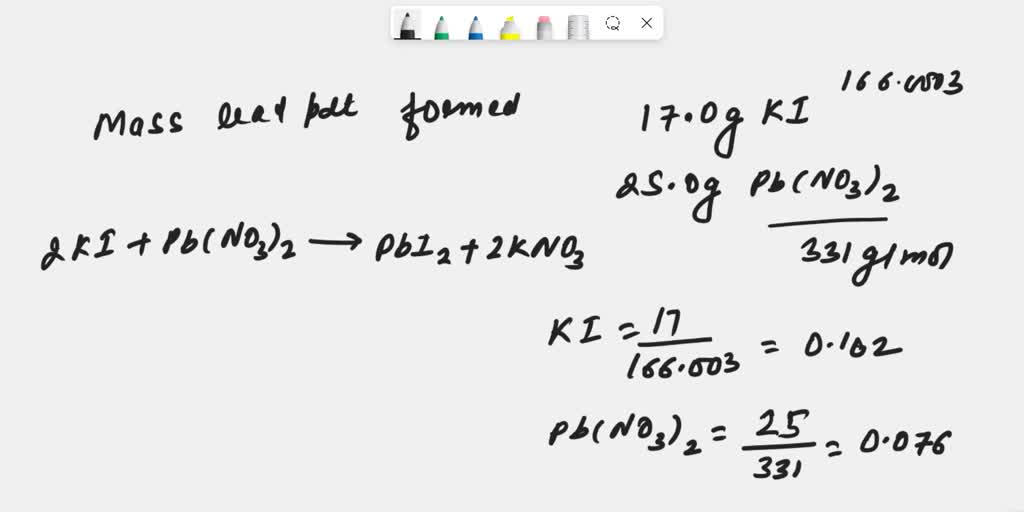 Mass lead pdt formed
166.003
17.0g KI
25.0g Pb(NO3)2
331 g/mol
2KI + Pb(NO3)2 → PbI2 + 2KNO3
KI = 17/166.003 = 0.102
Pb(NO3)2 = 25/331 = 0.076